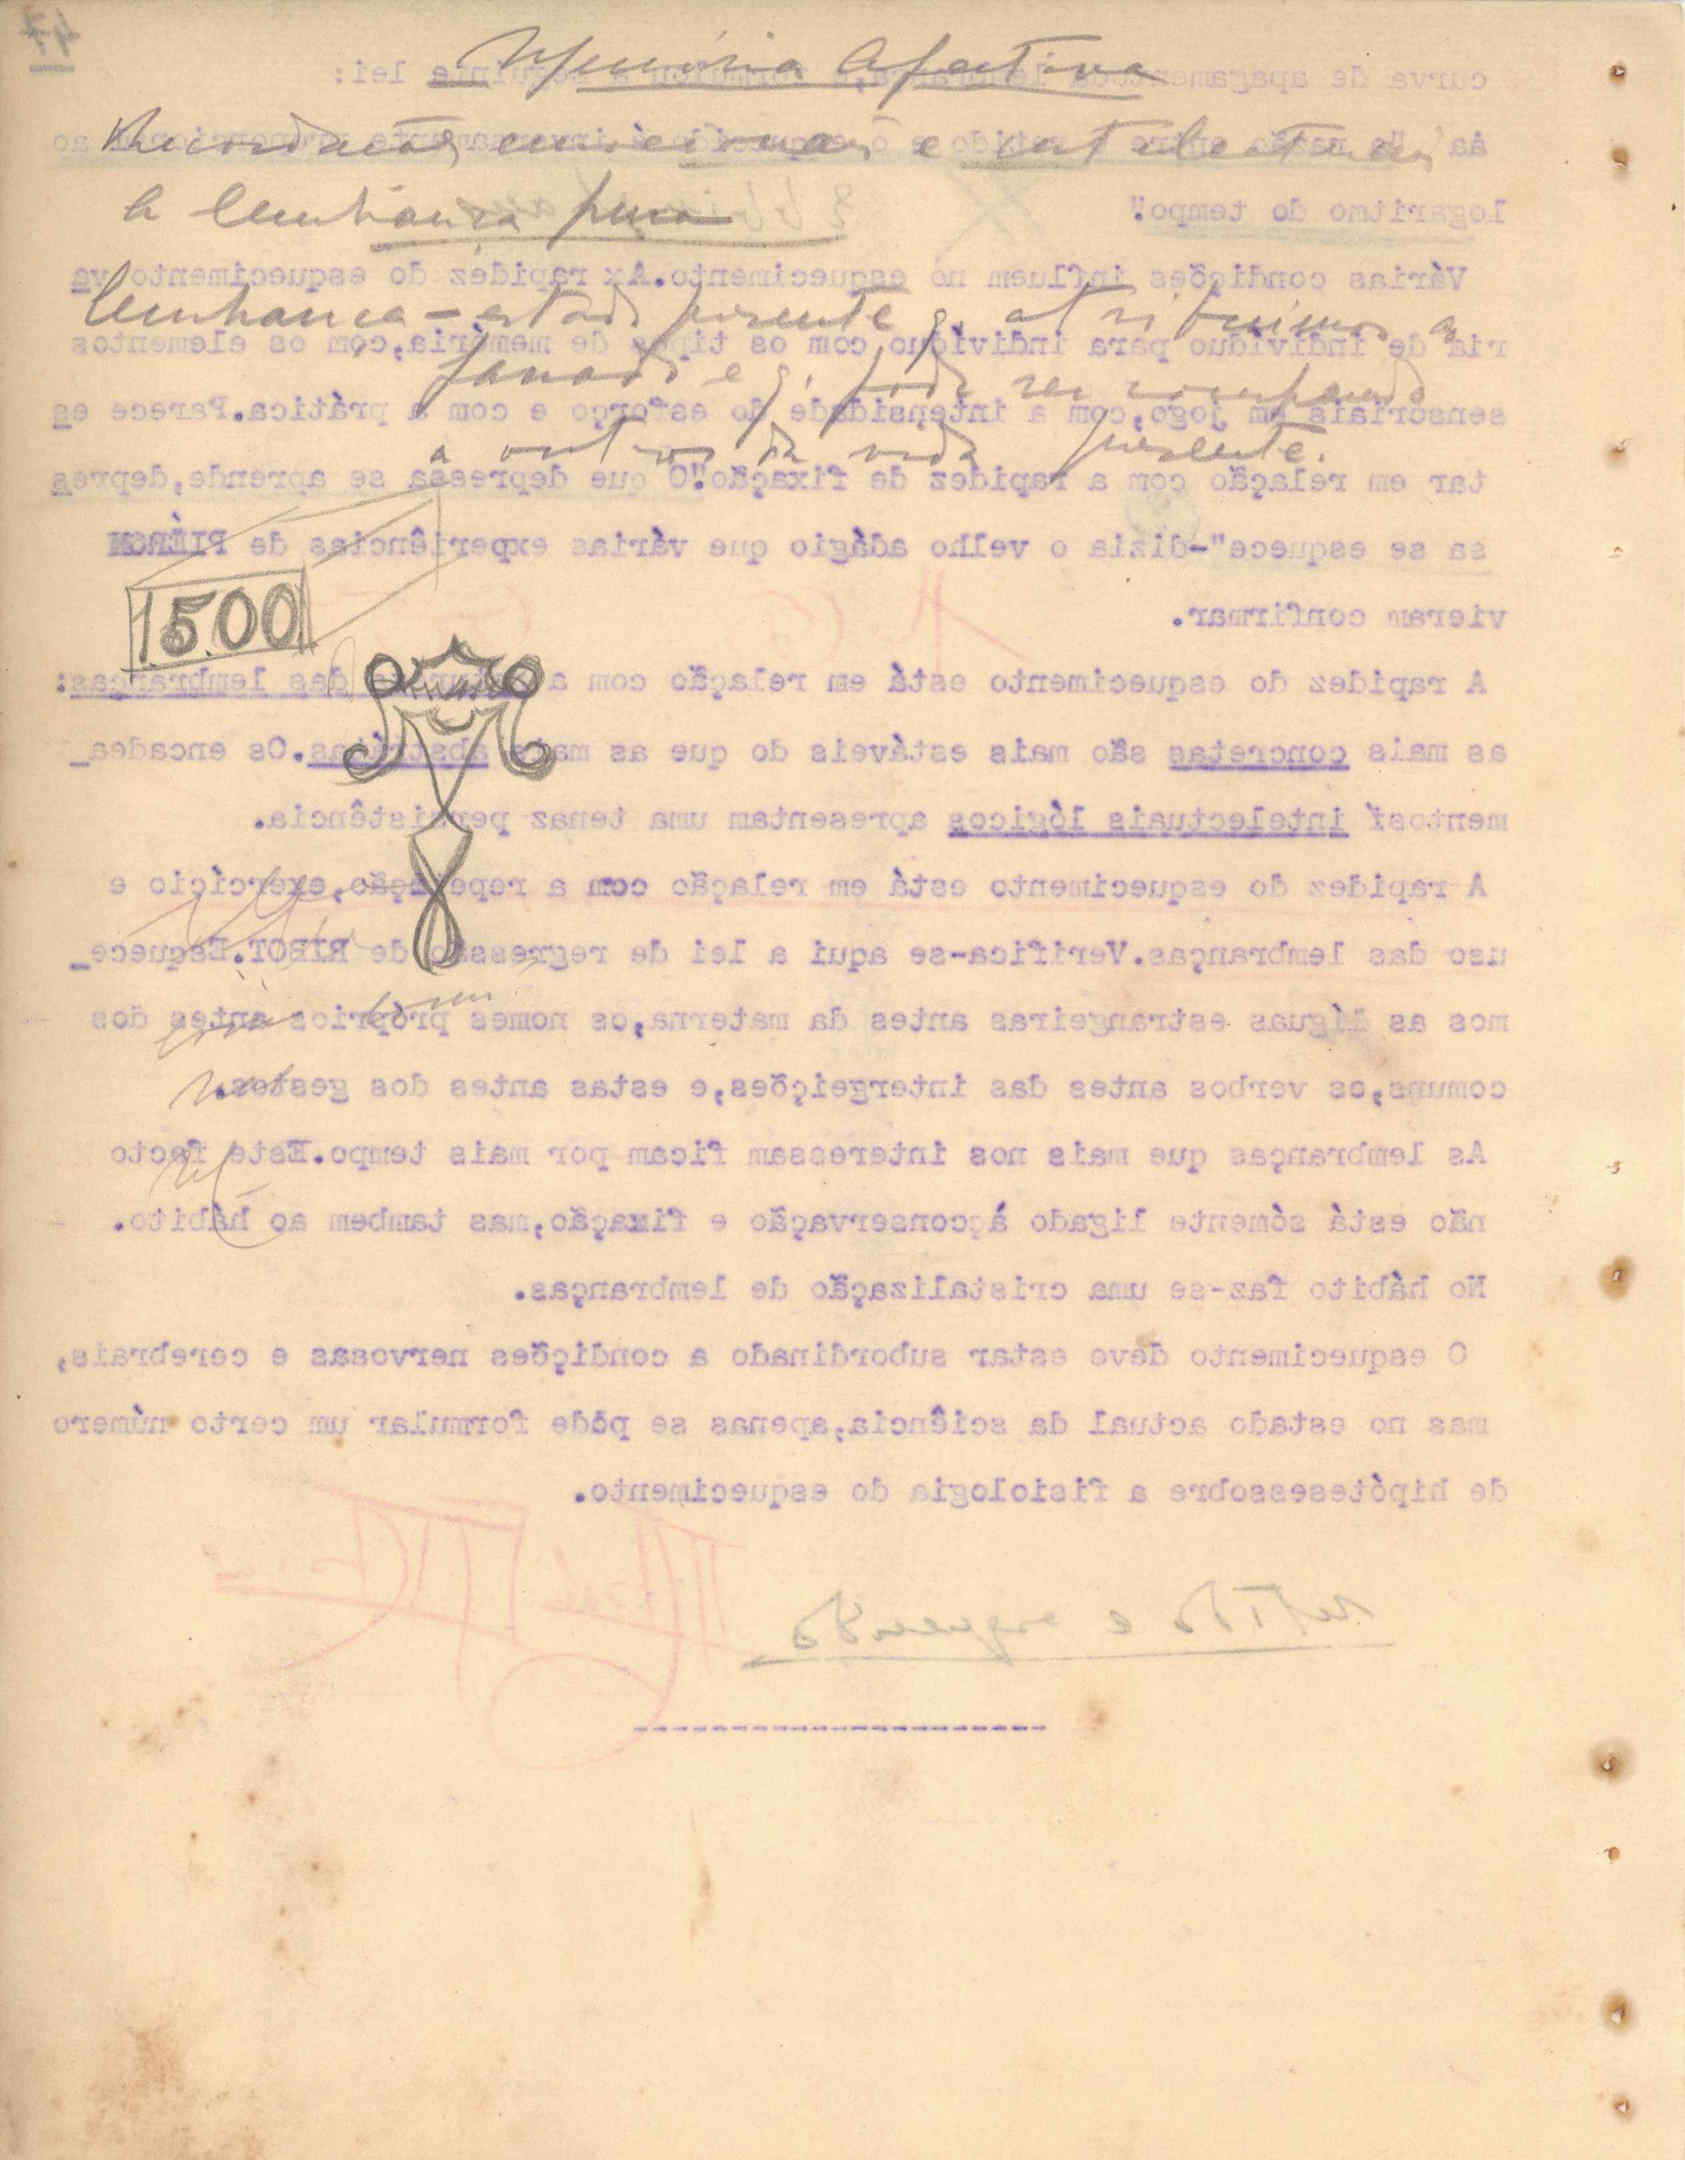 47
Memória Afectiva
curva de apagamento lei:
Recordações emocionais e intelectuais
logaritmo do tempo"
A lembrança pura
Várias condições influem no esquecimento. Ax rapidez do esquecimento va
lembrança — estado presente q. atribuimos ao
ria de indivíduo para indivíduo com os tipos de memória, com os elementos
passado e q. pode ser comparado
sensoriais em jogo, com a intensidade do esforço e com a prática. Parece es
a outros da vida presente.
tar em relação com a rapidez de fixação "O que depressa se aprende, depres
sa se esquece"-dizia o velho adágio que várias experiências de PIÉRON
1.500
vieram confirmar.
A rapidez do esquecimento está em relação com a das lembranças:
as mais concretas são mais estáveis do que as mais abstratas. Os encadea_
mentos intelectuais lógicos apresentam uma tenaz persistência.
A rapidez do esquecimento está em relação com a repetição, exercício e
uso das lembranças. Verifica-se aqui a lei de regressão de RIBOT. Esquece_
mos as línguas estrangeiras antes da materna, os nomes próprios antes dos
comuns, os verbos antes das intergeições, e estas antes dos gestos.
As lembranças que mais nos interessam ficam por mais tempo. Este facto
não está sómente ligado àçconservação e fixação, mas tambem ao hábito.
No hábito faz-se uma cristalização de lembranças.
O esquecimento deve estar subordinado a condições nervosas e cerebrais,
mas no estado actual da sciência, apenas se póde formular um certo número
de hipótesessobre a fisiologia do esquecimento.
retido e esquecido